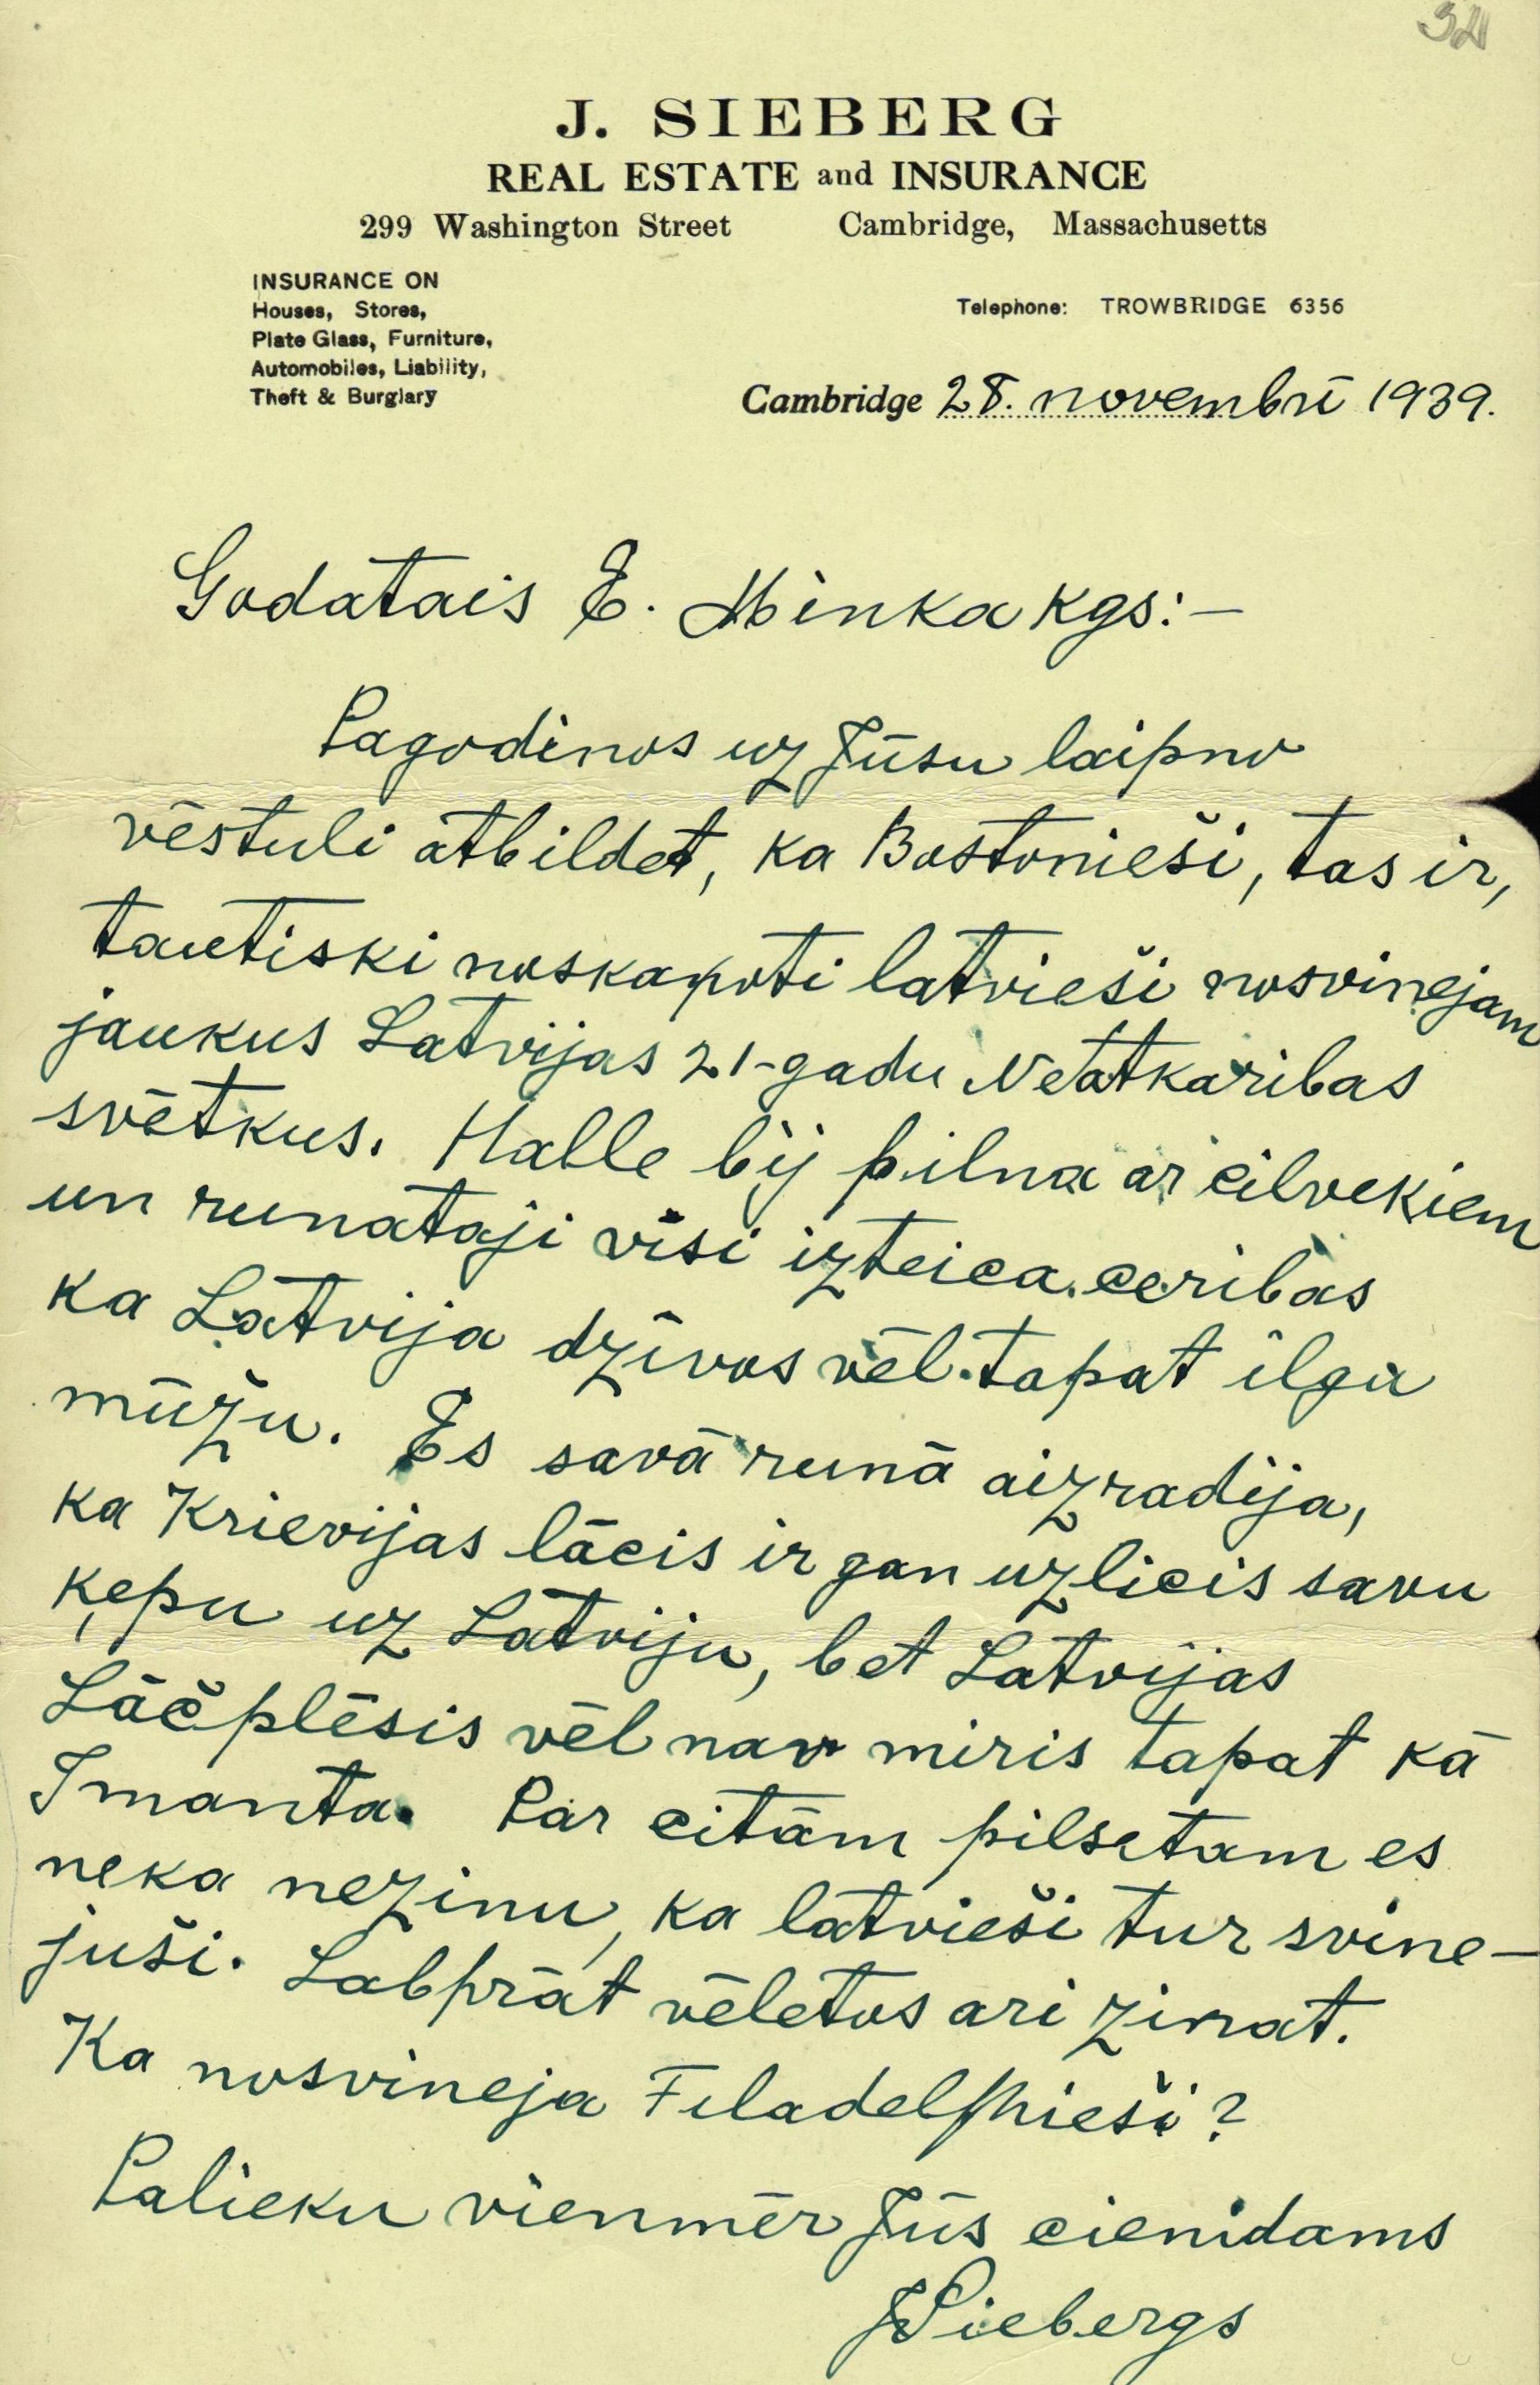 32
J. SIEBERG
REAL ESTATE and INSURANCE
299 Washington Street Cambridge, Massachusetts
INSURANCE ON
Houses, Stores,
Plate Glass, Furniture,
Automobiles, Liability,
Theft & Burglary
Telephone: TROWBRIDGE 6356
Cambridge 28. novembrī 1939.
Godatais E. Minka kgs:—
Pagodinos uz Jūsu laipno
vēstuli atbildet, ka Bostonieši, tas ir,
tautiski noskaņoti latvieši nosvinejam
jaukus Latvijas 21-gadu Neatkaribas
svētkus. Halle bij pilna ar cilvekiem
un runataji visi izteica ceribas
ka Latvija dzīvos vēl tapat ilgu
mūžu. Es savā runā aizradija,
ka Krievijas lācis ir gan uzlicis savu
ķepu uz Latviju, bet Latvijas
Lāčplēsis vēl nav miris tapat kā
Imanta. Par citām pilsetam es
neka nezinu, ka latvieši tur svine-
juši. Labprāt vēletos ari zinat.
Ka nosvineja Filadelfhieši?
Palieku vienmēr Jūs cienidams
JSiebergs